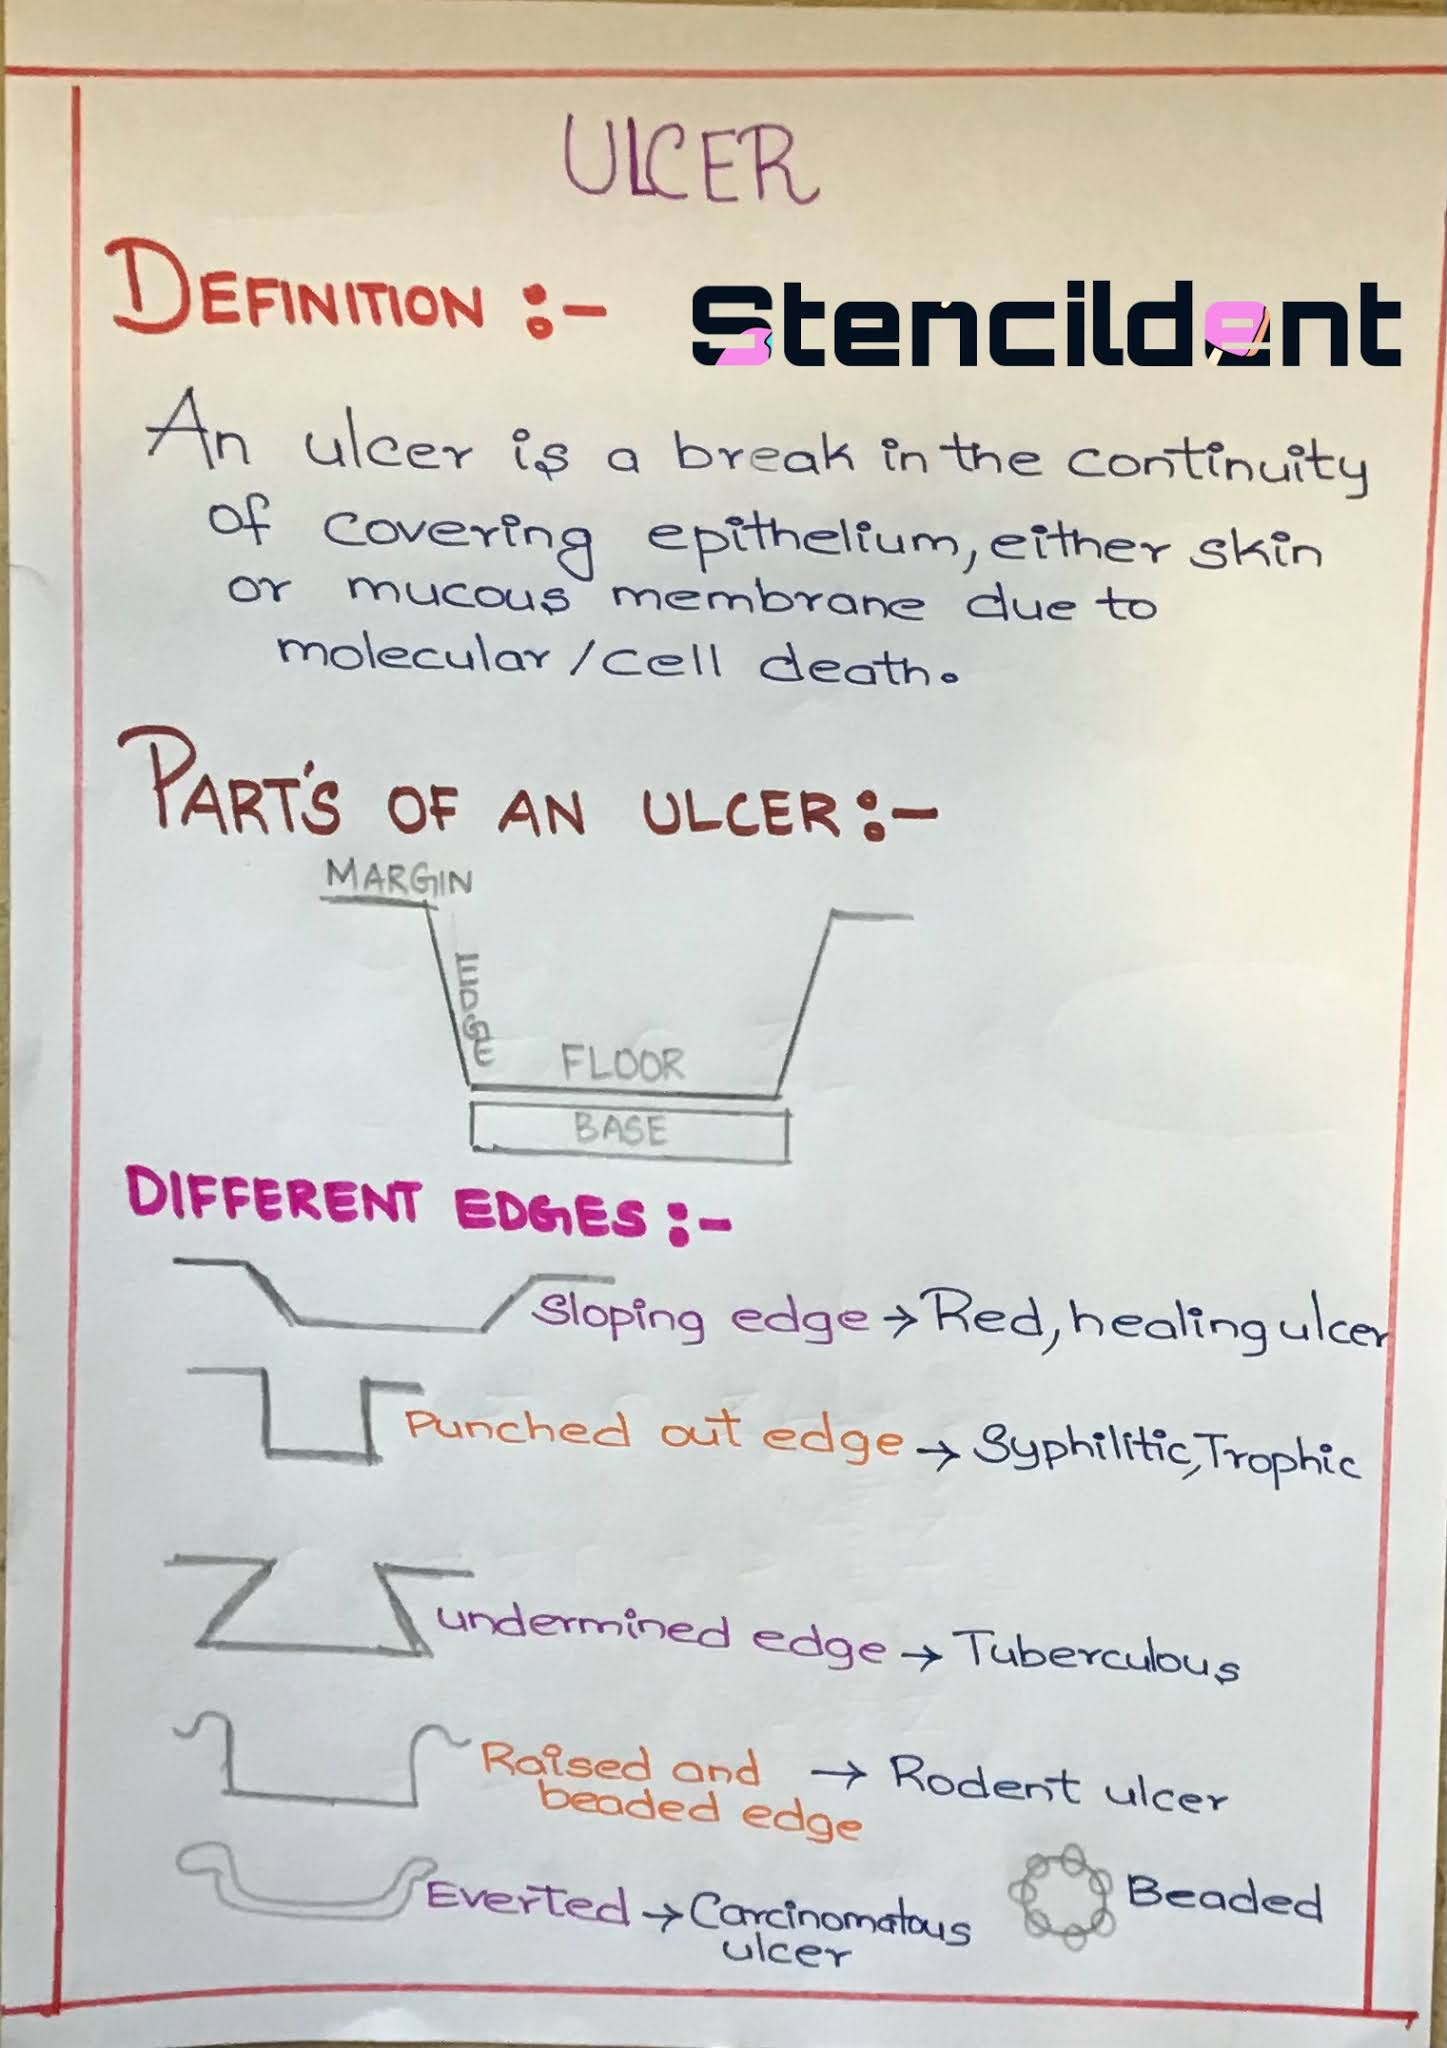 ULCER
DEFINITION :-
Stencildent
An ulcer is a break in the continuity
of covering epithelium, either skin
or mucous membrane due to
molecular/cell death.
PART'S OF AN ULCER :-
MARGIN
EDGE
FLOOR
BASE
DIFFERENT EDGES :-
Sloping edge → Red, healing ulcer
Punched out edge → Syphilitic, Trophic
undermined edge → Tuberculous
Raised and → Rodent ulcer
beaded edge
Everted → Carcinomatous
ulcer
Beaded